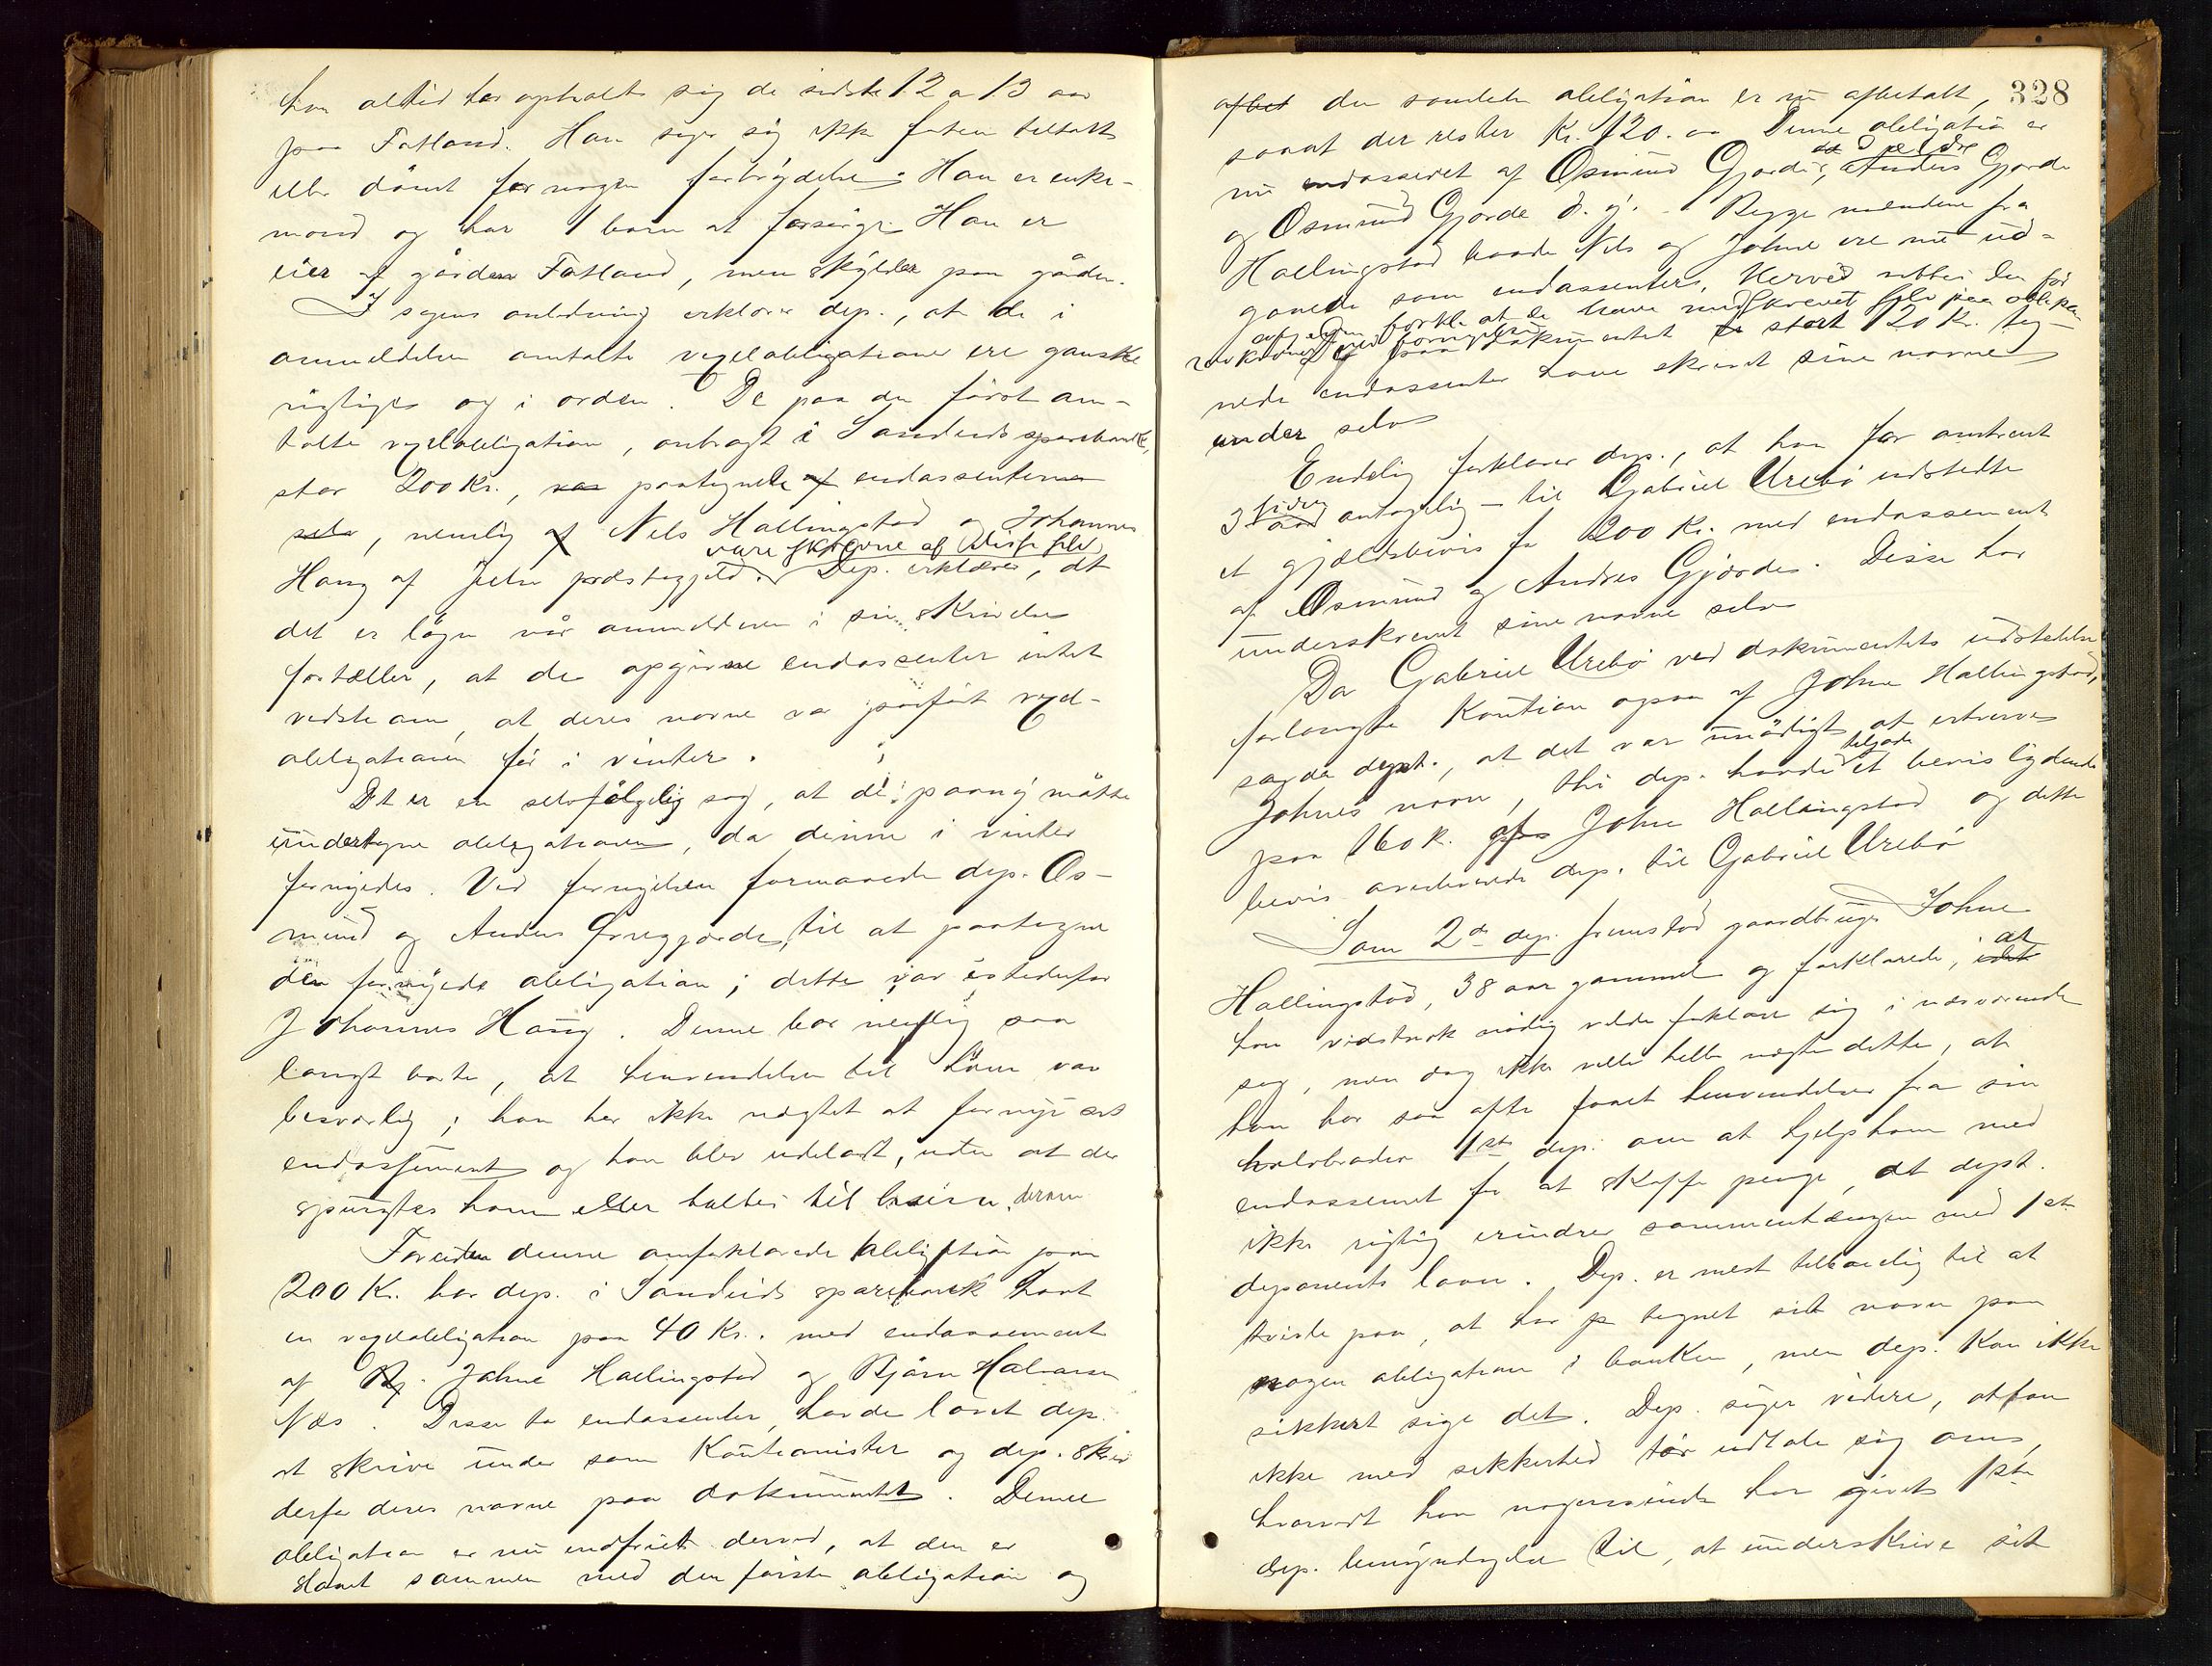 han altid har opholdt sig de sidste 12 a 13 aar
paa Fatland. Han siger sig ikke før tiltalt
eller dömt for nogen forbrydelse. Han er enke-
mand og har 1 barn at forsörge. Han er
eier af gården Fatland, men skylder paa gården.
I sagens anledning erklærer dep., at de i
anmeldelsen omtalte vexelobligationer ere ganske
rigtige og i orden. De paa den först om-
talte vexelobligation, anbragt i Sandeids sparebank,
stor 200 Kr., var paategnede af endossenterne
selv, nemlig af Nils Hallingstad og Johannes
Haug af Jelse præstegjeld. vare skrevne af disse selv Dep. erklærer, at
det er lögn når anmelderen i sin skrivelse
fortæller, at de opgivne endossenter intet
vidste om, at deres navne var påfört vexel-
obligationen för i vinter.
Det er en selvfölgelig sag, at de paany måtte
undertegne obligationen, da denne i vinter
fornyedes. Ved fornyelsen formaaede dep. Os-
mund og Anders Grregjorde til at paategne
den fornyede obligation; dette var istedenfor
Johannes Haug. Denne bor nemlig saa
langt borte, at henvendelse til ham var
besværlig; han har ikke nægtet at fornye sit
endossement og han blev udeladt, uden at der
spurgtes ham eller taltes til ham derom
Foruden denne omforklarede obligation paa
200 Kr. har dep. i Sandeids sparebank havt
en vexelobligation paa 40 Kr. med endossement
af Johne Hallingstad og Björn Halvorsen
Næs. Disse to endossenter havde lovet dep.
at skrive under som Kautionister og dep. skrev
derfor deres navne paa dokumentet. Denne
obligation er nu indfriet derved, at den er
slaaet sammen med den förste obligation og
328
afbet den samlede obligation er nu afbetalt,
saaat der rester Kr. 120.00 Denne obligation er
nu endosseret af Osmund Gjorde d ældre, Anders Gjorde
og Osmund Gjorde d. y. Begge mændene fra
Hallingstad baade Nils og Johne ere nu ud-
gaaede som endossenter. Herved
De paa dokumentet stort 120 Kr. teg-
nede endossenter have skrevet sine navne
under selv
Endelig forklarer dep., at han for omtrent
3 aar siden antagelig – til Gabriel Urebö udstedte
et gjældsbevis for 200 Kr. med endossement
af Osmund og Andres Gjorde. Disse har
underskrevet sine navne selv
Da Gabriel Urebö ved dokumentets udstedelse
forlangte Kaution ogsaa af Johne Hallingstad,
sagde depst., at det var unödigt at erhverve
Johnes navn, thi dep. havde tilgode et bevis lydende
paa 160 k. af Johne Hallingstad og dette
bevis overleverede dep. til Gabriel Urebö
Som 2de dep. fremstod gaardbruger Johne
Hallingstad, 38 aar gammel og forklarede, at
han vidstnok nödig vilde forklare sig i nærværende
sag, men dog ikke vilde heller nægte dette, at
han har saa ofte faaet henvendelser fra sin
halvbroder 1ste dep. om at hjelpe ham med
endossement for at skaffe penge, at depst.
ikke rigtig erindrer sammenhængen med 1ste
deponents laan. Dep. er mest tilböielig til at
tvivle paa, at har tegnet sit navn paa
nogen obligation i banken, men dep. Kan ikke
sikkert sige det. Dep. siger videre, at han
ikke med sikkerhed tör udtale sig om,
hvorvidt han nogensinde har givet 1ste
dep. bemyndigelse til, at underskrive sit